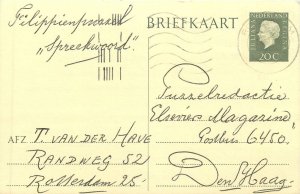 Filippienpsaal
BRIEFKAART
„Spreekwoord".
NEDERLAND
20C
Puzzelredactie
Elseviers Magazine
Postbus 6450,
AFZ. T. VAN DER HAVE
RANDWEG 52
Rotterdam 25.
Den Haag.